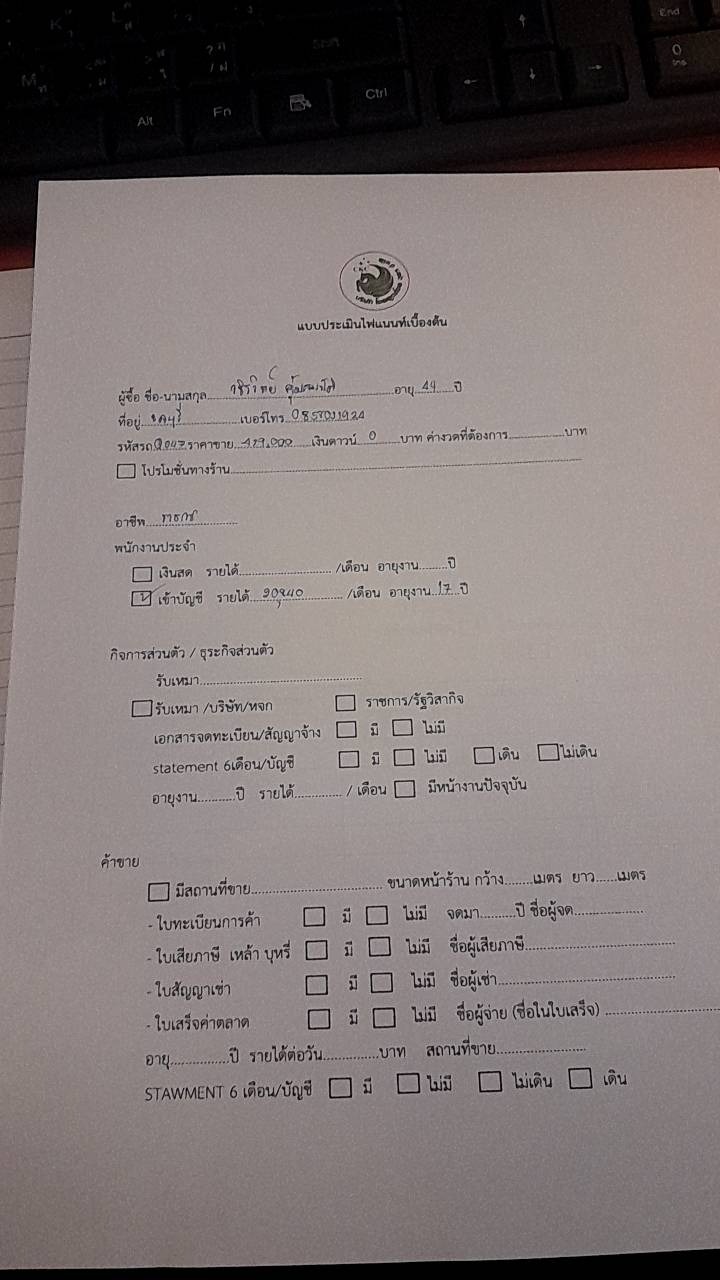 แบบประเมินไฟแนนท์เบื้องต้น
ผู้ซื้อ ชื่อ-นามสกุล อายุ 44 ปี
ที่อยู่ เบอร์โทร
รหัสรถ ราคาขาย เงินดาวน์ 0 บาท ค่างวดที่ต้องการ บาท
โปรโมชั่นทางร้าน
อาชีพ
พนักงานประจำ
เงินสด รายได้ /เดือน อายุงาน ปี
เข้าบัญชี รายได้ /เดือน อายุงาน 17 ปี
กิจการส่วนตัว / ธุระกิจส่วนตัว
รับเหมา
รับเหมา /บริษัท/หจก ราชการ/รัฐวิสากิจ
เอกสารจดทะเบียน/สัญญาจ้าง มี ไม่มี
statement 6เดือน/บัญชี มี ไม่มี เดิน ไม่เดิน
อายุงาน ปี รายได้ / เดือน มีหน้างานปัจจุบัน
ค้าขาย
มีสถานที่ขาย ขนาดหน้าร้าน กว้าง เมตร ยาว เมตร
- ใบทะเบียนการค้า มี ไม่มี จดมา ปี ชื่อผู้จด
- ใบเสียภาษี เหล้า บุหรี่ มี ไม่มี ชื่อผู้เสียภาษี
- ใบสัญญาเช่า มี ไม่มี ชื่อผู้เช่า
- ใบเสร็จค่าตลาด มี ไม่มี ชื่อผู้จ่าย (ชื่อในใบเสร็จ)
อายุ ปี รายได้ต่อวัน บาท สถานที่ขาย
STAWMENT 6 เดือน/บัญชี มี ไม่มี ไม่เดิน เดิน